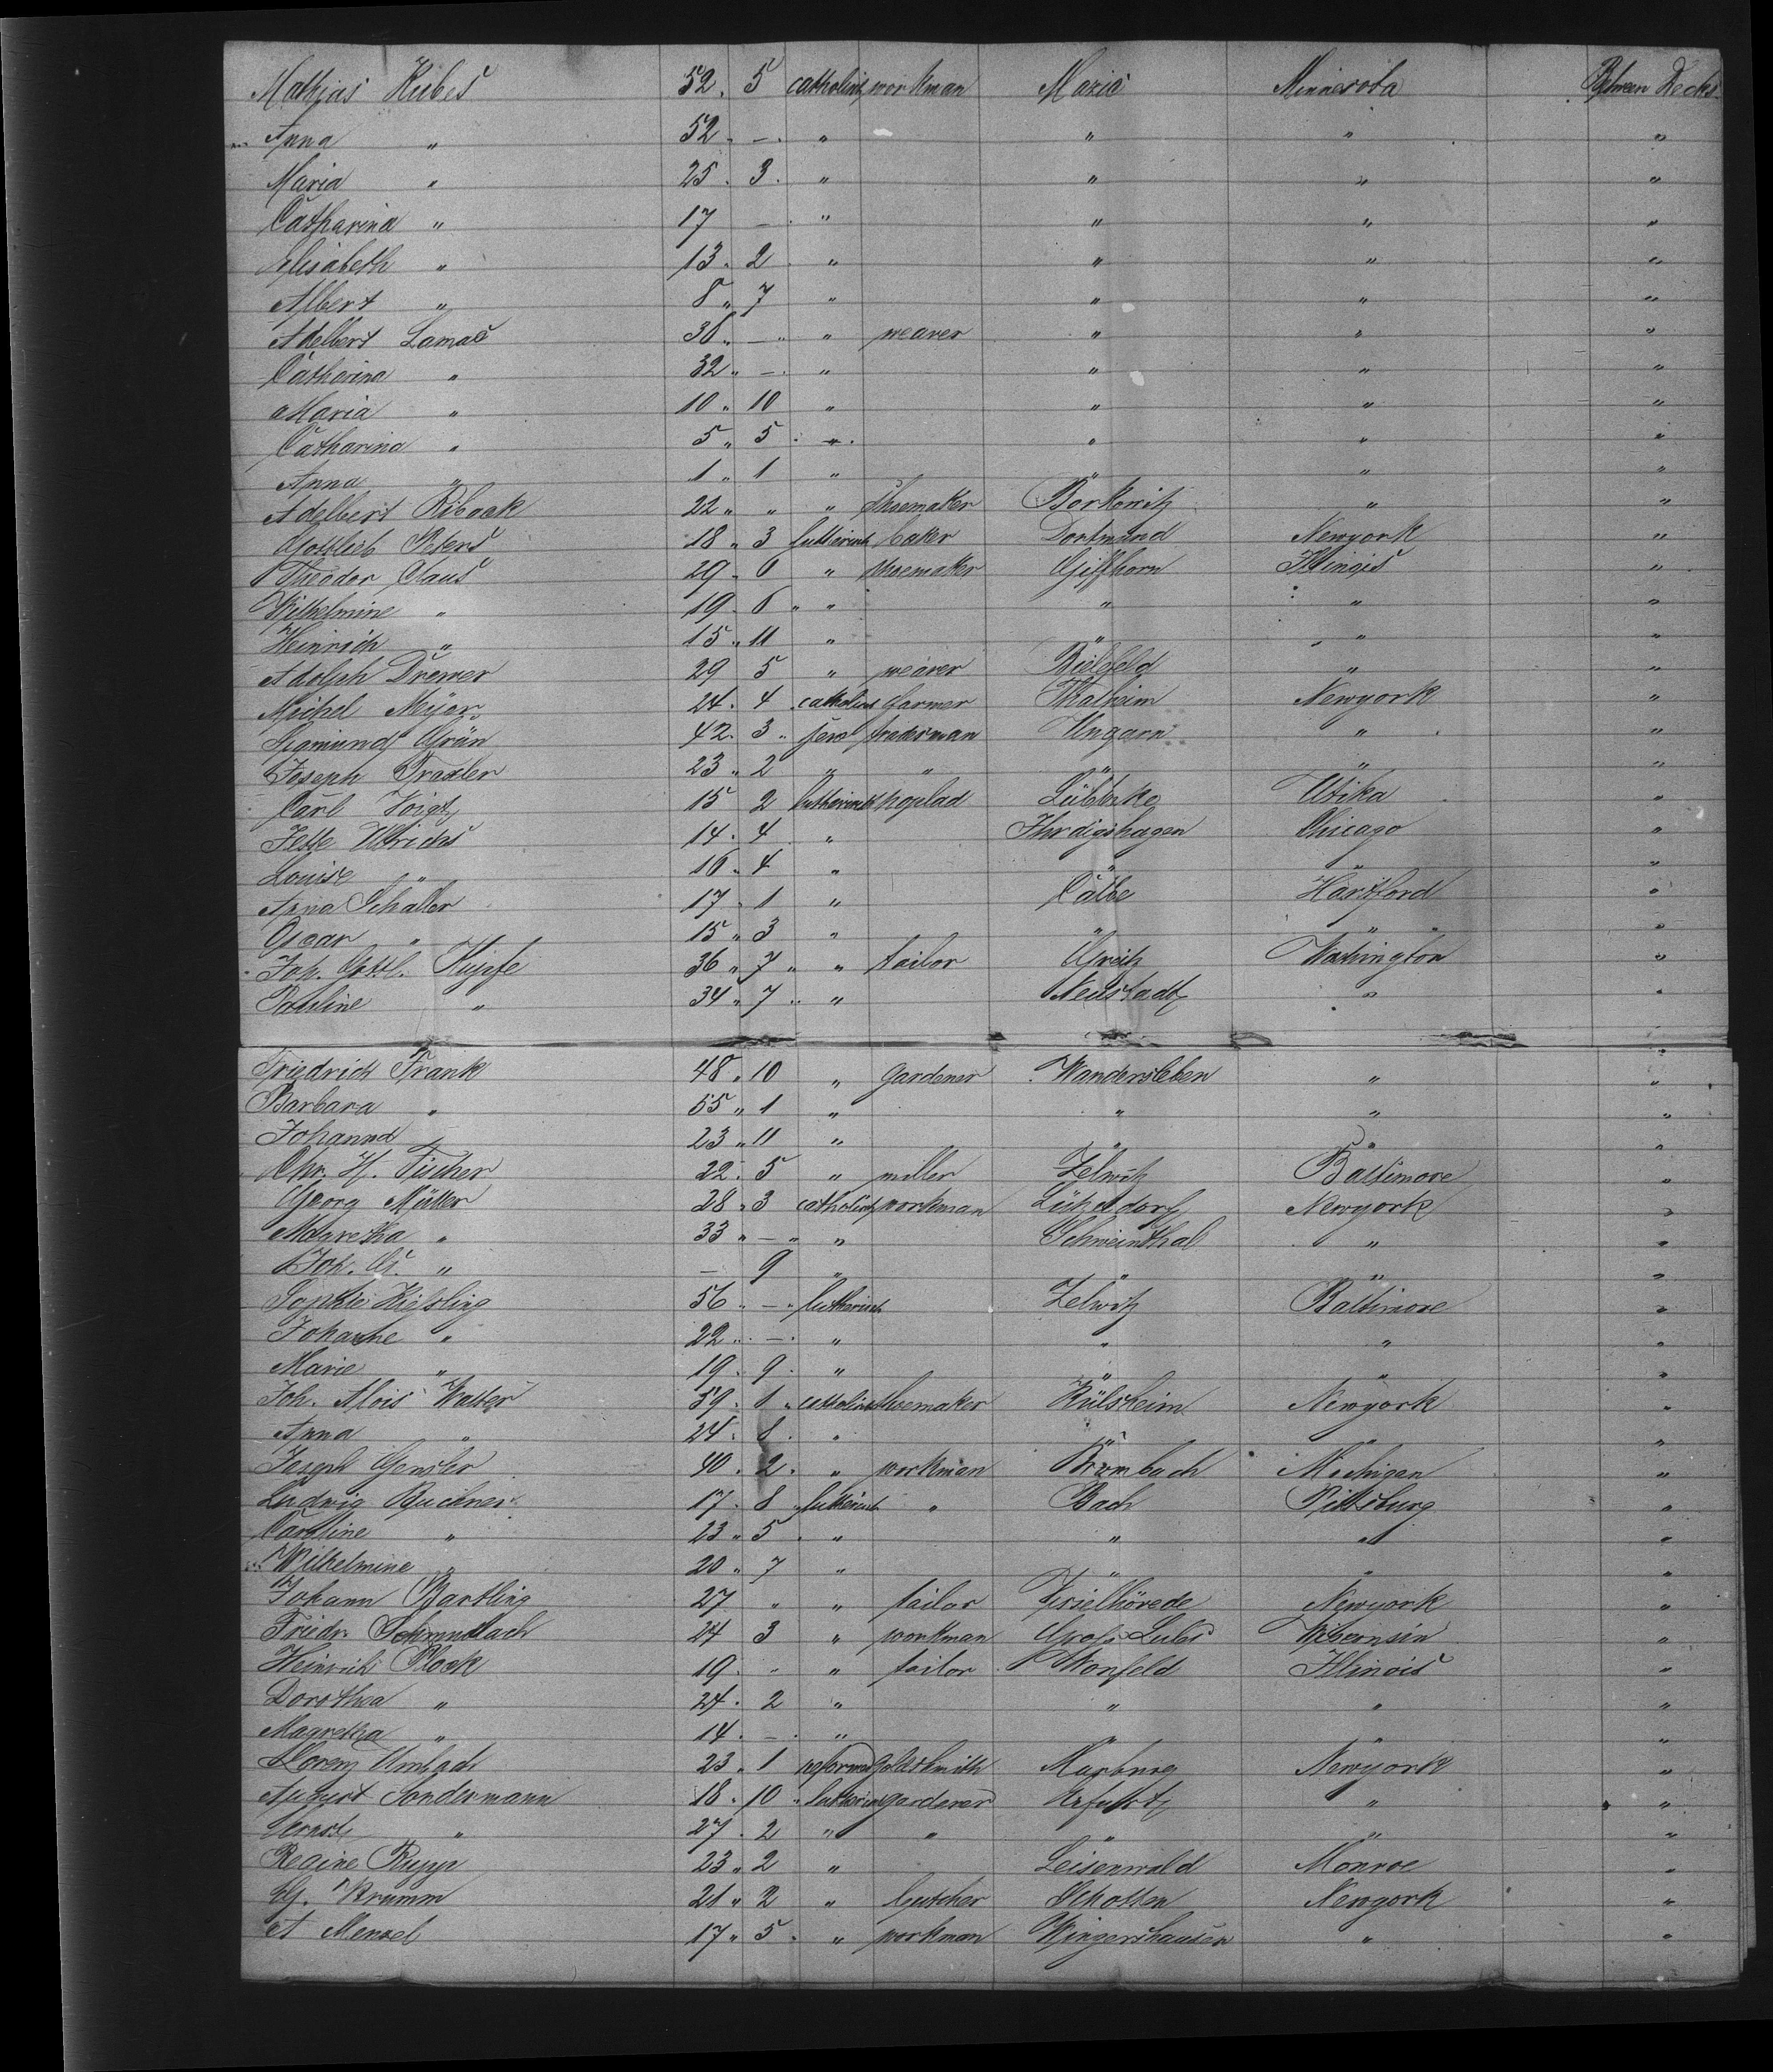 Mathias Kubeš 52 „ 5 catholish workman Mazic Minnesota Between Decks
Anna „ 52 „ — „ „ „ „
Maria „ 25 „ 3 „ „ „ „
Catharina „ 17 — „ „ „ „
Elisabeth „ 13 „ 2 „ „ „ „
Albert „ 8 „ 7 „ „ „ „
Adelbert Lamač 36 „ — „ „ weaver „ „ „
Catharina „ 32 „ — „ „ „ „
Maria „ 10 „ 10 „ „ „ „
Catharina „ 5 „ 5 „ „ „ „
Anna „ 1 „ 1 „ „ „ „
Adelbert Riback 22 „ „ „ Shoemaker Borkowitz „ „
Gottlieb Peters 18 „ 3 lutherish baker Dortmund Newyork „
Theodor Claus 29 „ 6 „ shoemaker Giffhorn Illinois „
Wilhelmine „ 19 „ 6 „ „ „ „ „
Heinrich „ 15 „ 11 „ „ „ „
Adolph Dremer 29 5 „ weaver Bielefeld „ „
Michel Meijer 24 „ 4 catholish farmer Thalheim Newyork „
Sigmund Grün 42 „ 3 „ jew tradesman Ungarn „ „
Joseph Traxler 23 „ 2 „ „ „ „ „
Carl Voigt 15 2 lutherish Lübbeke Utika „
Ulrichs 14 „ 4 „ Chicago „
Louise „ 16 „ 4 „ „ „ „
Anna Schaller 17 „ 1 „ Calbe Hartford „
Oscar „ 15 „ 3 „ „ „ „
Joh. Gottl. 36 „ 7 „ „ tailor Greitz Washington „
Pauline „ 34 „ 7 „ „ Neustadt „ „
Friedrich Frank 48 „ 10 „ gardener Wandersleben „ „
Barbara „ 55 „ 1 „ „ „ „
Johanna 23 „ 11 „ „ „ „
Chr. H. Fischer 22 „ 5 „ miller Zelwitz Baltimore „
Georg Müller 28 „ 3 catholish workman Newyork „
Magretha „ 33 „ — „ „ Schweinthal „ „
Joh. G. „ — 9 „ „ „ „
Sophie Kiessling 56 „ — „ lutherish Zelwitz Baltimore „
Johanne „ 22 „ — „ „ „ „
Marie „ 19 „ 9 „ „ „ „ „
Joh. Alois Walter 39 „ 1 „ catholish shoemaker Külsheim Newyork „
Anna „ 24 „ 8 „ „ „ „ „
Joseph Gensler 40 „ 2 „ „ workman Brombach Michigan „
Ludwig Buchner 17 „ 8 „ lutherish „ Bach Pittsburg „
Caroline „ 23 „ 5 „ „ „ „ „
Wilhelmine „ 20 „ 7 „ „ „ „
Johann Bartling 27 „ „ tailor Newyork „
Friedr. 24 3 „ workman Gross Wisconsin „
Heinrich Plock 19 „ „ „ tailor Wonfeld Illinois „
Dorothea „ 24 „ 2 „ „ „ „
Magretha „ 14 „ — „ „ „ „ „
Lorenz Umbach 23 „ 1 reformed goldsmith Marburg Newyork „
August Sondermann 18 „ 10 „ lutherish gardener Erfurt „ „
Ernst „ 27 „ 2 „ „ „ „ „
Regine Rupp 23 „ 2 „ Leisenwald Monroe „
G. Krumm 21 „ 2 „ butcher Schotten Newyork „
A Menzel 17 „ 5 „ „ workman Wingershausen „ „